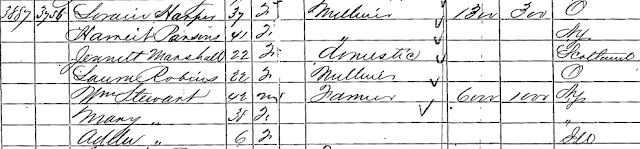 3887 3756 Harper 37 F Milliner 1300 300 O
Harriet Parsons 41 F " Ny
Jennett Marshall 22 F domestic Scotland
Laura Robins 22 F Milliner O
Wm Stewart 42 m Farmer 6000 1000 Ny
Mary " 38 F "
6 F Ills